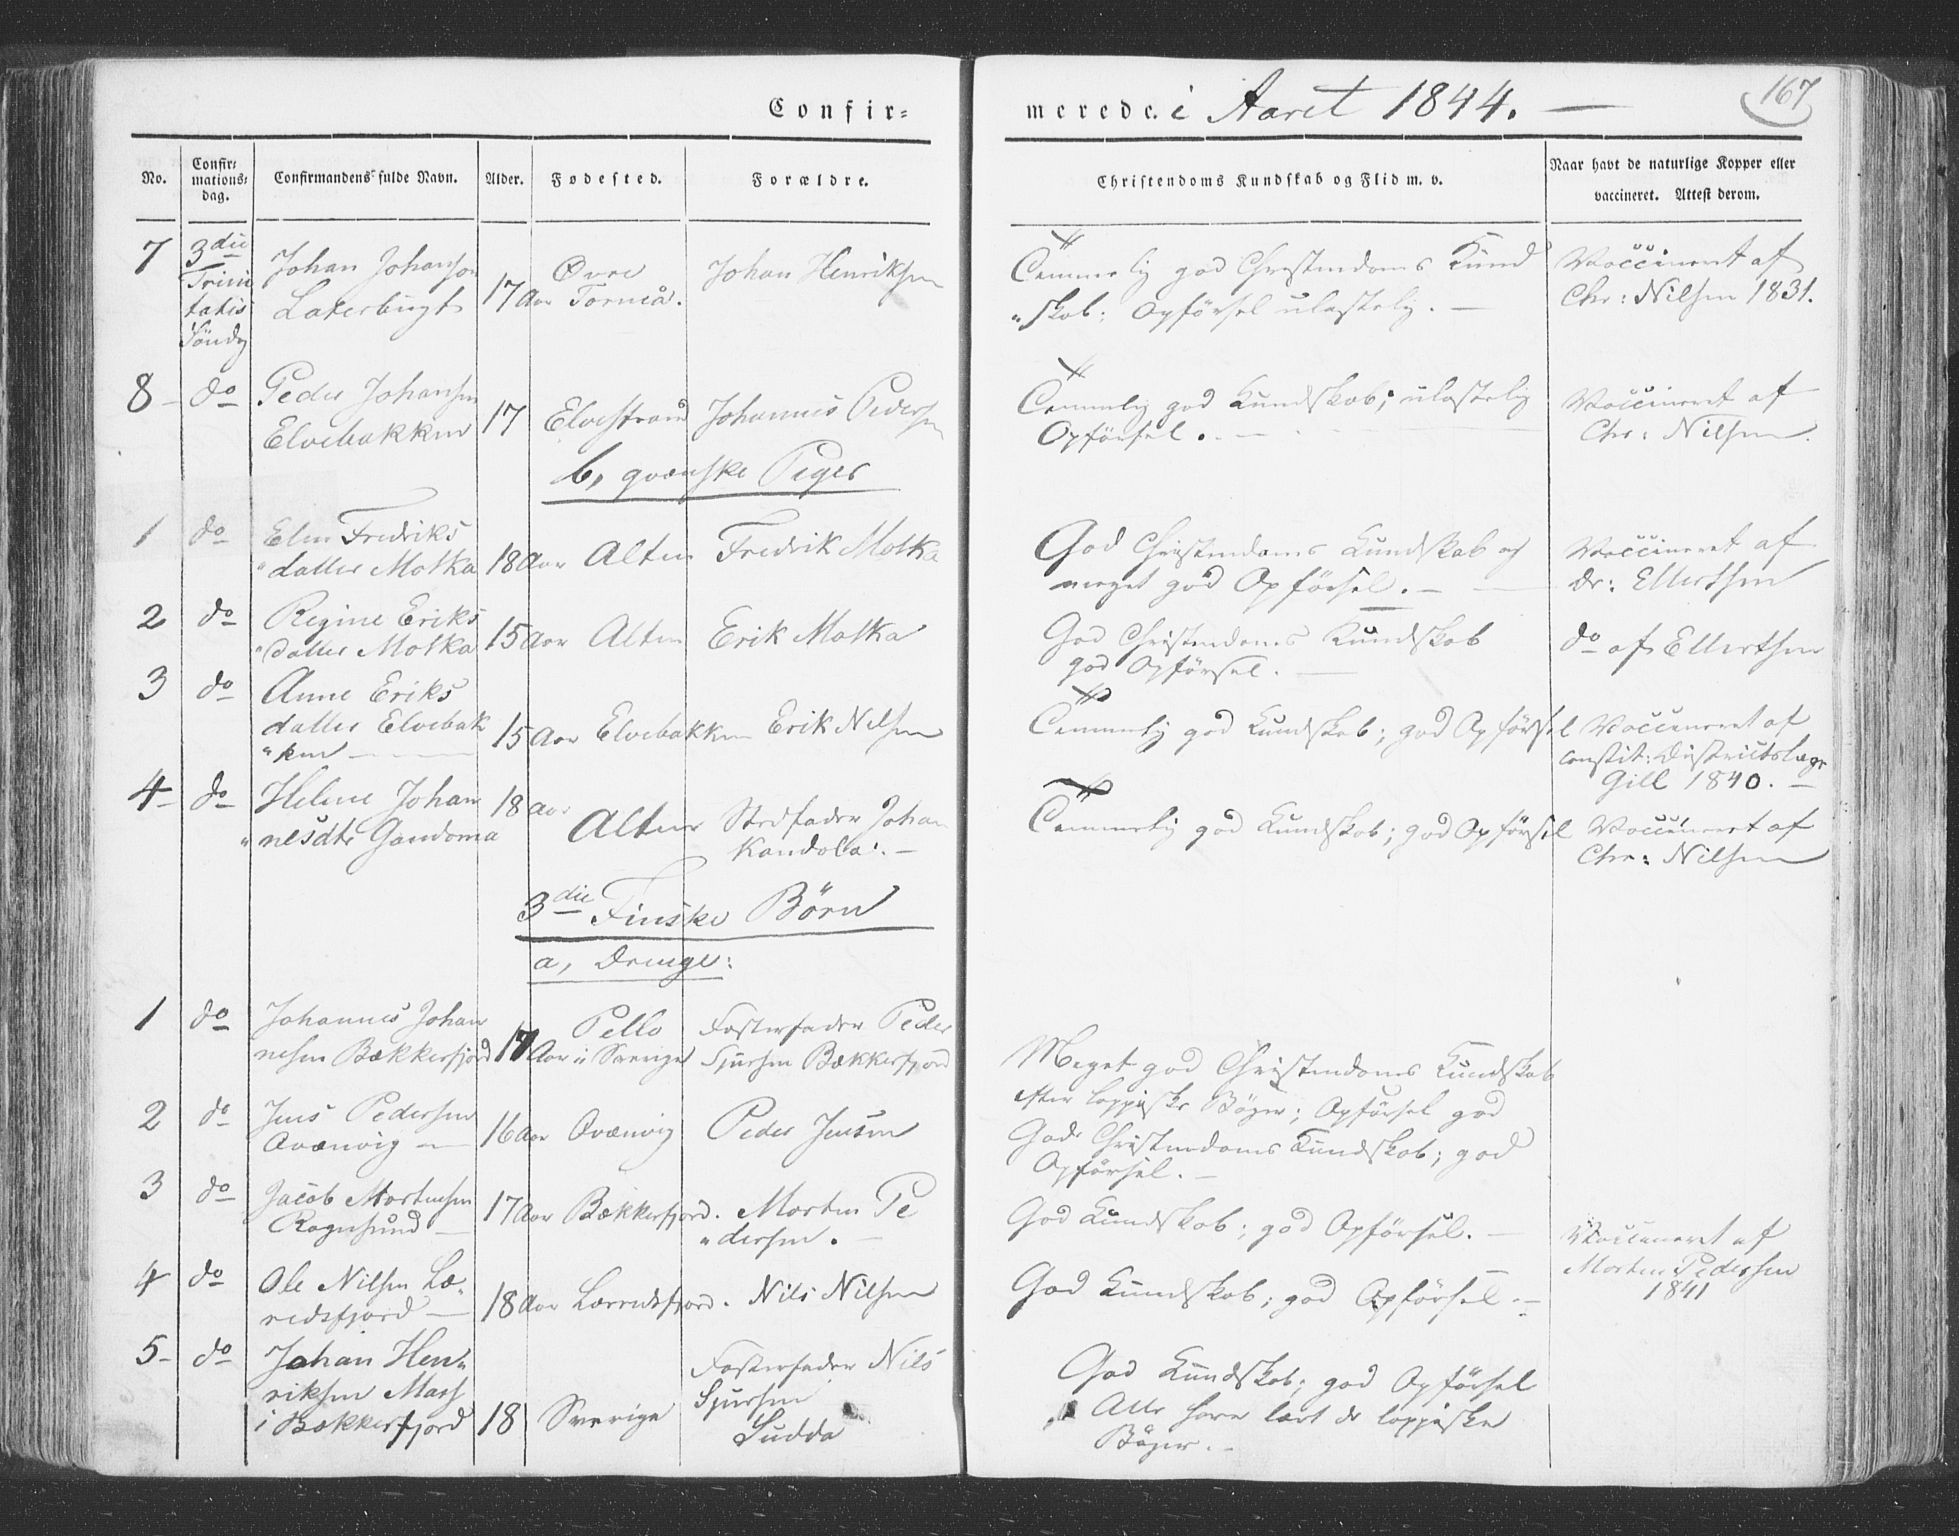 Confir=
merede. i Aaret 1844. —
167
No.
Confir=
mations=
dag.
Confirmandens fulde Navn.
Alder.
Fødested.
Forældre.
Christendoms Kundskab og Flid m. v.
Naar havt de naturlige Kopper eller
vaccineret. Attest derom.
7 3die Trini
tatis
Søndg
Johan Johansen
Laterbugt
17 Aar
Øvre
Torneå.
Johan Henriksen
Temmelig god Christendoms Kund
"skab; Opførsel ulastelig. —
Vaccineret af
Chr: Nilsen 1831.
8 — do
Peder Johansen
Elvebakken
17
Elvestrand
Johannes Pedersen
Temmelig god Kundskab; ulastelig
Opførsel. —
Vaccineret af
Chr: Nilsen.
b, qvænske Piger
1 do
Elen Fredriks
"datter Motka
18 Aar
Alten
Fredrik Motka
God Christendoms Kundskab og
meget god Opførsel. —
Vaccineret af
Dr: Ellertsen
2 do
Regine Eriks
"datter Motka
15 Aar
Alten
Erik Motka
God Christendoms Kundskab
god Opførsel. —
do af Ellertsen
3 do
Anne Eriks
datter Elvebak
"ken —
15 Aar
Elvebakken
Erik Nilsen
Temmelig god Kundskab; god Opførsel
Vaccineret af
constit: Districtslæge
Gill 1840. —
4 — do
Helene Johan
"nesdtr Gandoma
18 Aar
Alten
Stedfader Johan
Kandola. —
Temmelig god Kundskab; god Opførsel
Vaccineret af
Chr: Nilsen
3die Finske Børn
a, Drenge:
1 do
Johannes Johan
nesen Bækkerfjord
17 Aar
Pello
i Sverige
Fosterfader Peder
Sjursen Bækkerfjord
Meget god Christendoms Kundskab
efter lappiske Bøger; Opførsel god
2 do
Jens Pedersen
Qvænvig —
16 Aar
Qvænvig
Peder Jensen
God Christendoms Kundskab; god
Opførsel. —
3 do
Jacob Mortensen
Rognsund —
17 Aar
Bækkerfjord.
Morten Pe
"dersen. —
God Kundskab; god Opførsel. —
Vaccineret af
Morten Pedersen
1841
4 do
Ole Nilsen Læ"
redsfjord —
18 Aar
Lærredsfjord.
Nils Nilsen
God Kundskab; god Opførsel. —
5 — do
Johan Hen"
riksen
i Bækkerfjord
18
Sverige
Fosterfader Nils
Sjursen
Sudda
God Kundskab; god Opførsel
Alle have lært de lappiske
Bøger. —